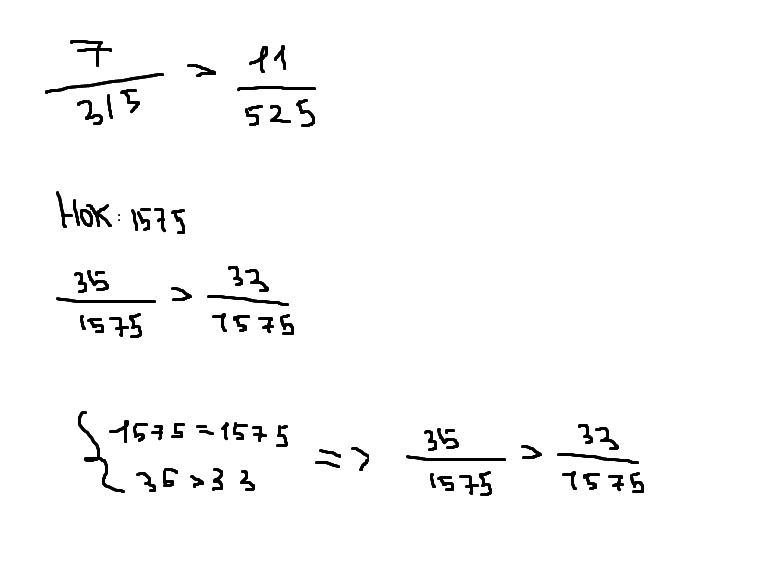 7/315 > 11/525
Нок: 1575
35/1575 > 33/1575
{ 1575 = 1575
35 > 33 => 35/1575 > 33/1575